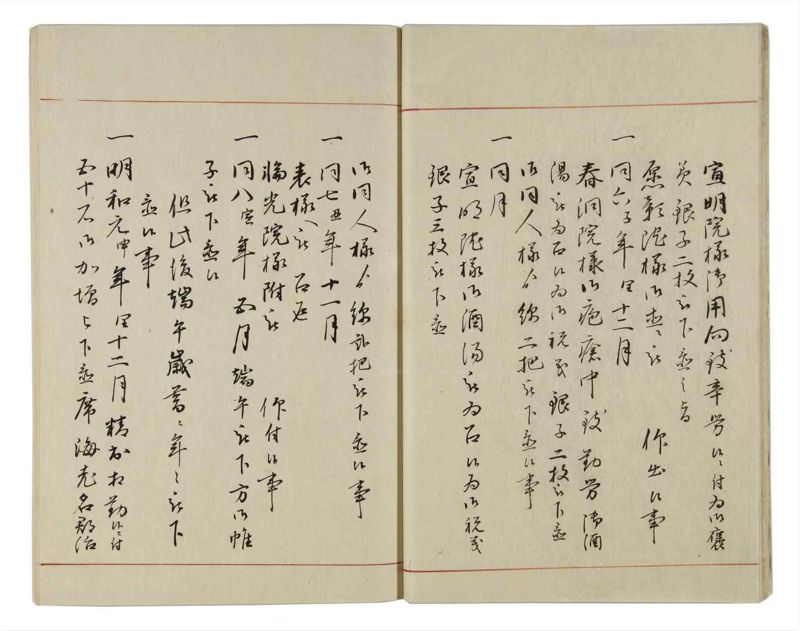 宣明院様御用向致辛労候ニ付為御褒
美銀子二枚被下置之旨
愿彰院様御直ニ被 仰出候事
一 同六子年四十二月
春洞院様御疱瘡中致勤労御酒
湯被為召候為御祝義銀子二枚被下置
御同人様ゟ綿二把被下置候事
一 同月
宣明院様御酒湯被為召候為御祝義
銀子三枚被下置
御同人様ゟ綿弐把被下置候事
一 同七丑年十一月
表様へ被召返
光院様附被 仰付候事
一 同八寅年 五月端午被下方御帷
子被下置候
但此後端午歳暮ニ年々被下
置候事
一 明和元申年四十二月精出相勤候ニ付
五十石御加増被下置席海老名郡治